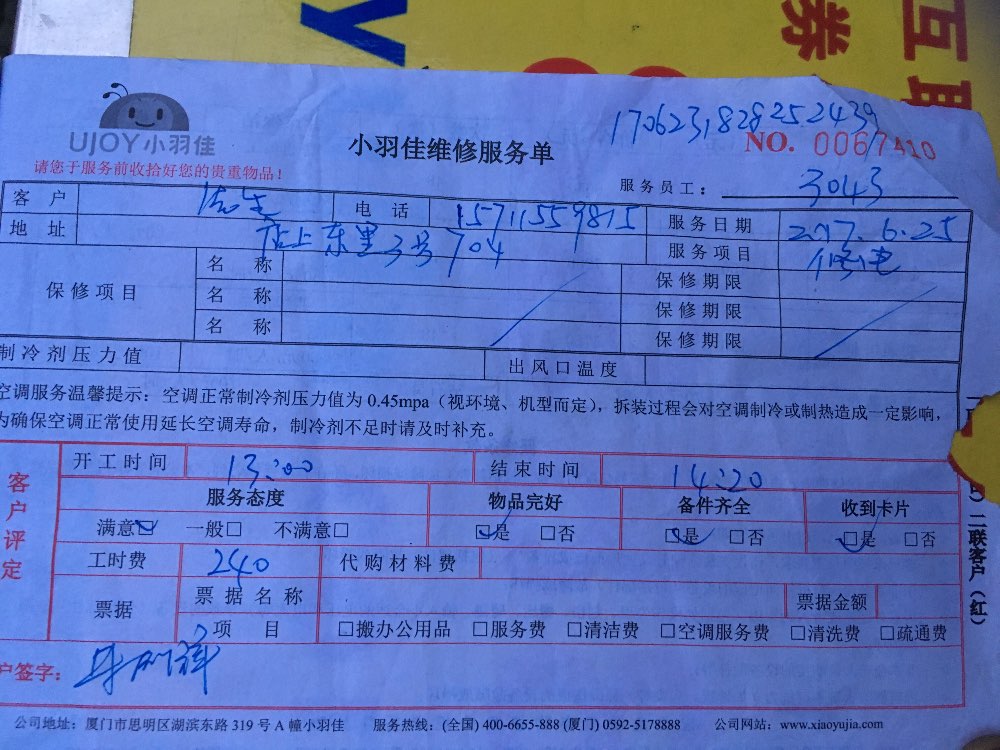 互联
券
y
170623182825 2439
UJOY小羽佳
小羽佳维修服务单
NO. 0067410
请您于服务前收拾好您的贵重物品！
服务员工： 3043
客 户 电 话 15711559815 服务日期 2017.6.25
地 址 店上东里3号704 服务项目 修电
保修项目
名 称 保修期限
名 称 保修期限
名 称 保修期限
制冷剂压力值 出风口温度
空调服务温馨提示：空调正常制冷剂压力值为 0.45mpa（视环境、机型而定），拆装过程会对空调制冷或制热造成一定影响，
为确保空调正常使用延长空调寿命，制冷剂不足时请及时补充。
客户评定
开工时间 13:00 结束时间 14:20
服务态度 物品完好 备件齐全 收到卡片
满意☑ 一般□ 不满意□ ☑是 □否 ☑是 □否 ☑是 □否
工时费 240 代购材料费
票据 票据名称 票据金额
项 目 □搬办公用品 □服务费 □清洁费 □空调服务费 □清洗费 □疏通费
二联客户（红）
户签字：
公司地址：厦门市思明区湖滨东路 319 号 A 幢小羽佳 服务热线：(全国) 400-6655-888 (厦门) 0592-5178888 公司网站：www.xiaoyujia.com